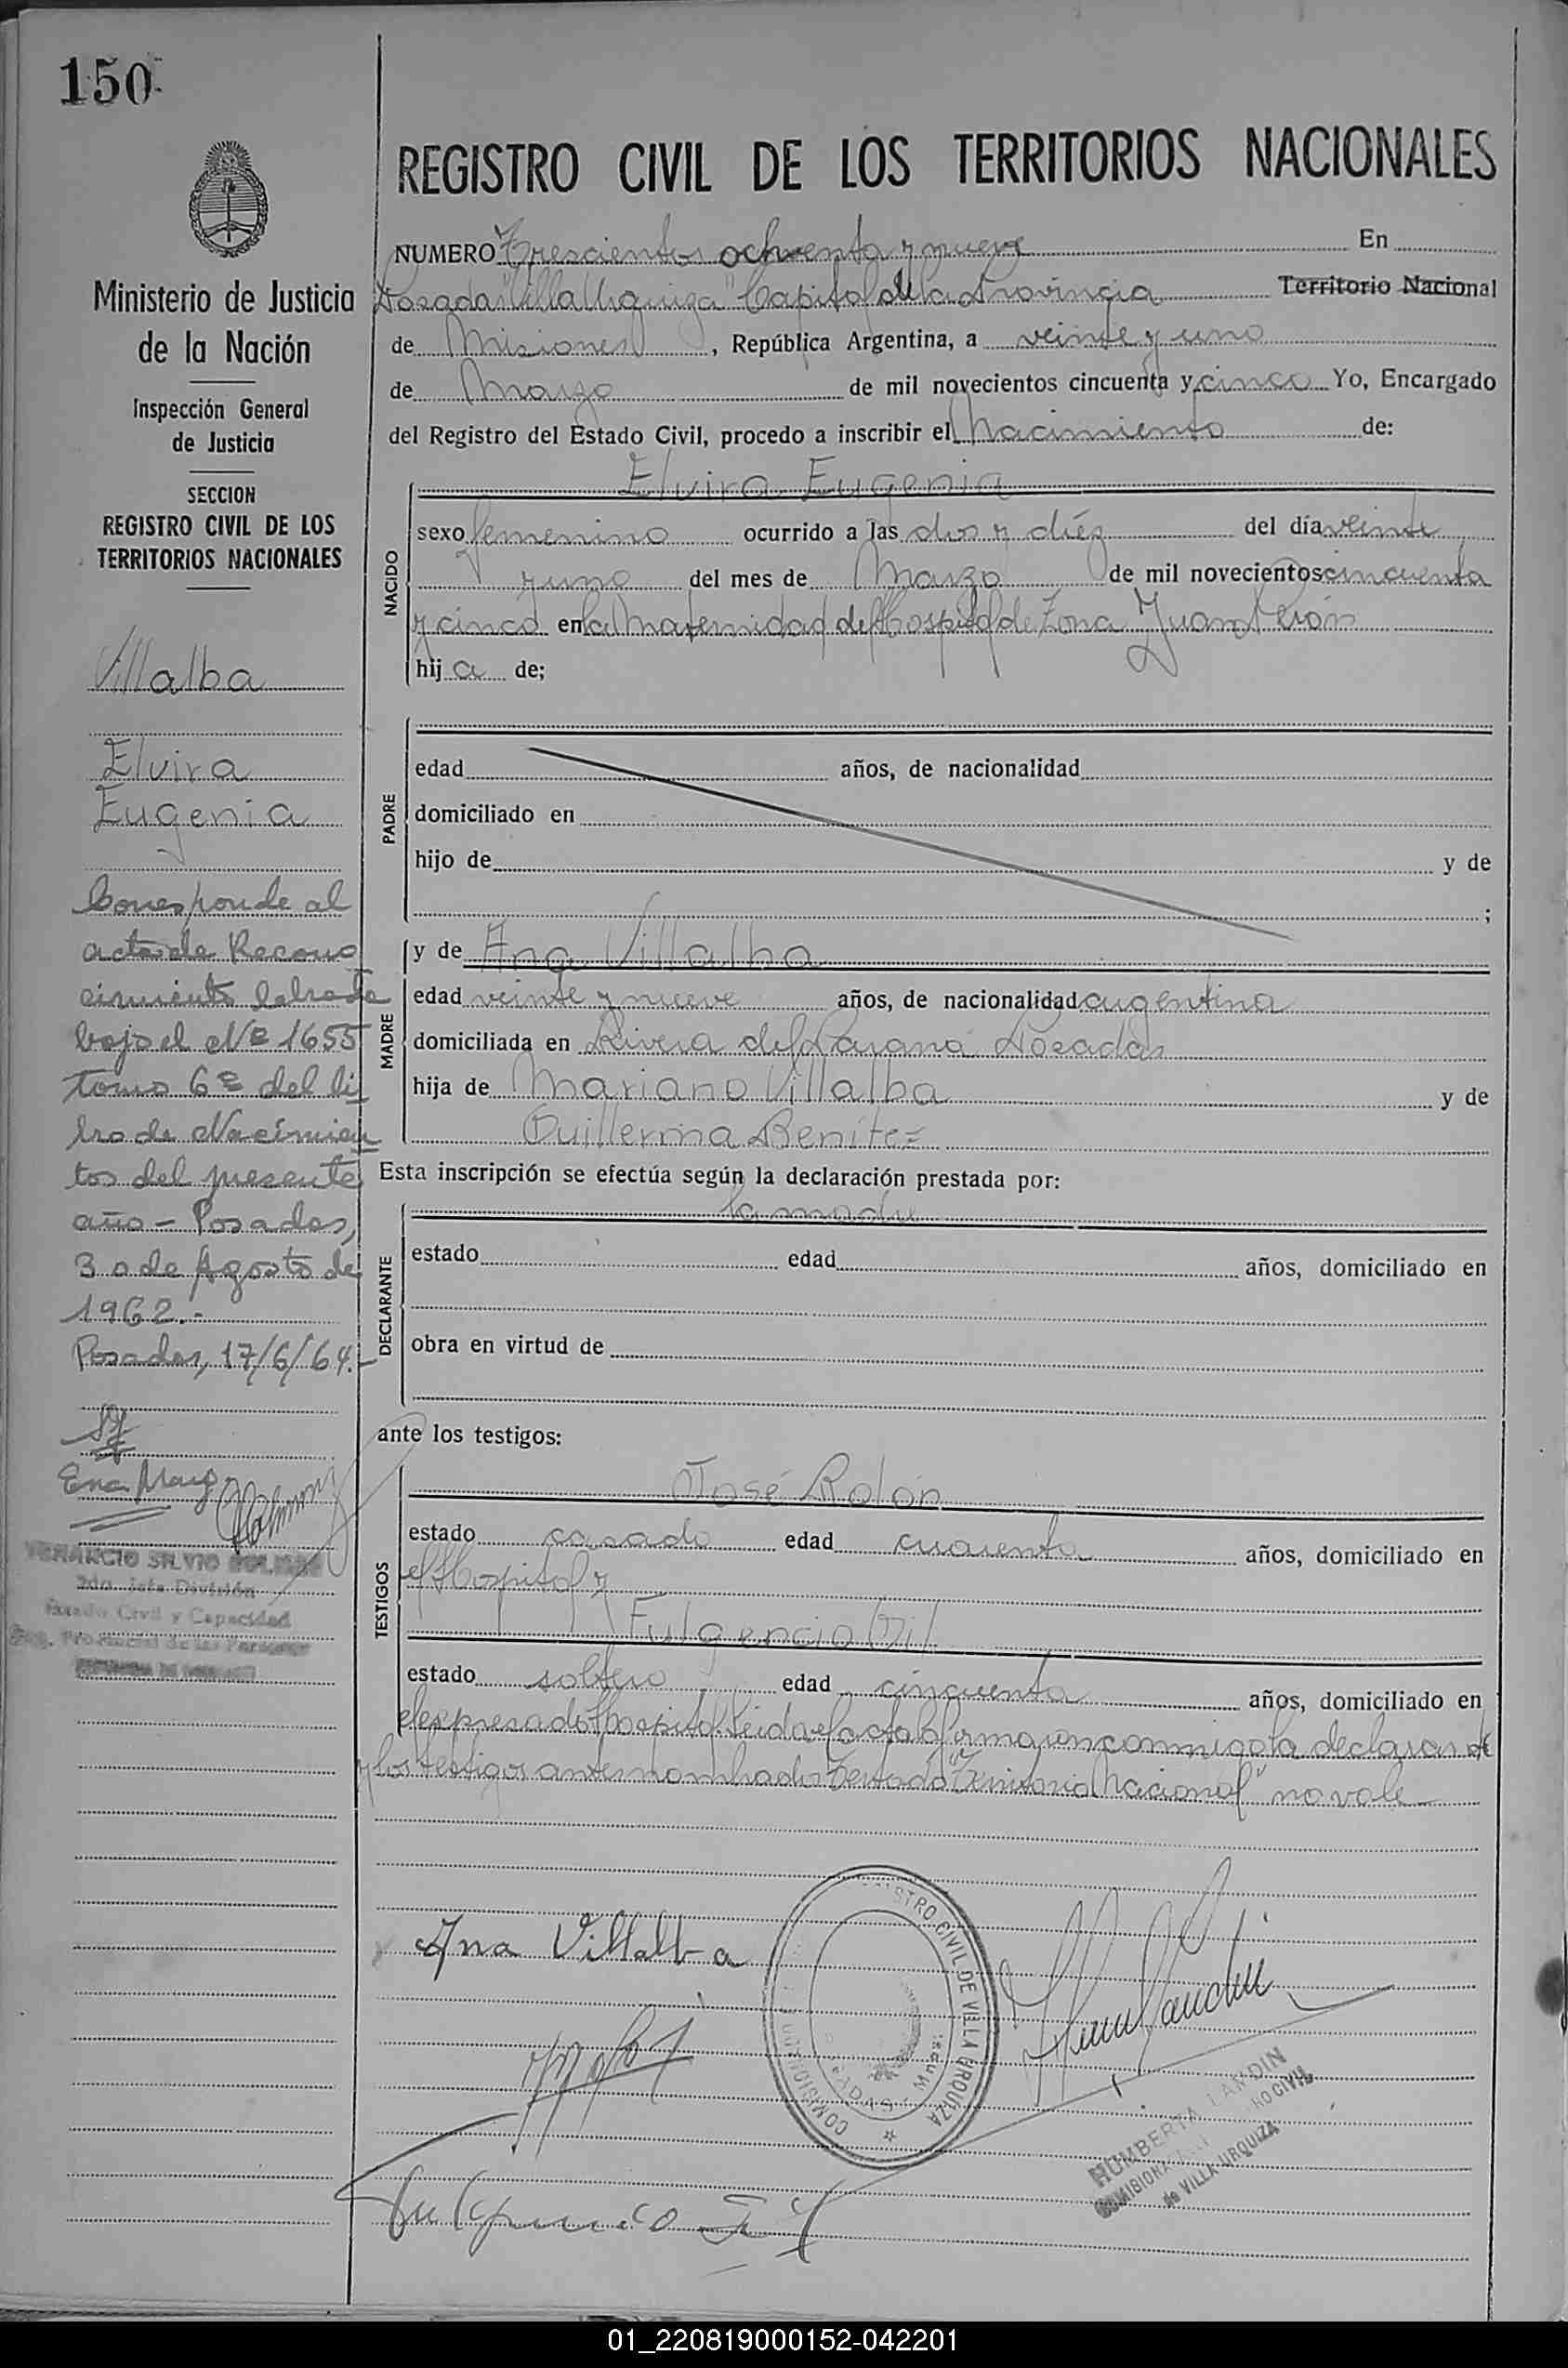 150
REGISTRO CIVIL DE LOS TERRITORIOS NACIONALES
Ministerio de Justicia
de la Nación
Inspección General
de Justicia
SECCION
REGISTRO CIVIL DE LOS
TERRITORIOS NACIONALES
Villalba
Elvira
Eugenia
Corresponde al
acta de Recono
cimiento labrada
bajo el Nº 1655
Tomo 6º del li
bro de Nacimien
tos del presente
año - Posadas,
30 de Agosto de
1962.-
Posadas, 17/6/64.-
VENANCIO SILVIO
2do. Jefe División
Estado Civil y Capacidad
Reg. Provincial de las Personas
NUMERO Trescientos ochenta y nueve En
Posadas "Villa Urquiza" Capital de la Provincia Territorio Nacional
de Misiones, República Argentina, a veinte y uno
de Marzo de mil novecientos cincuenta y cinco Yo, Encargado
del Registro del Estado Civil, procedo a inscribir el Nacimiento de:
NACIDO
Elvira Eugenia
sexo femenino ocurrido a las dos y diéz del día veinte
y uno del mes de Marzo de mil novecientos cincuenta
y cinco en la Maternidad del Hospital de Zona Juan Perón
hija de;
PADRE
edad años, de nacionalidad
domiciliado en
hijo de y de
;
MADRE
y de Ana Villalba
edad veinte y nueve años, de nacionalidad argentina
domiciliada en Rivera del Paraná Posadas
hija de Mariano Villalba y de
Guillerma Benitez
Esta inscripción se efectúa según la declaración prestada por:
DECLARANTE
la madre
estado edad años, domiciliado en
obra en virtud de
ante los testigos:
TESTIGOS
José Rolón
estado casado edad cuarenta años, domiciliado en
el Hospital y
Fulgencio Gil
estado soltero edad cincuenta años, domiciliado en
el expresado Hospital. Leida el acta la firmaron conmigo la declarante
y los testigos antes nombrados Testado "Territorio Nacional" no vale
Ana Villalba
REGISTRO CIVIL DE VILLA URQUIZA
POSADAS
HUMBERTA LANDIN
de VILLA URQUIZA
Fulgencio Gil
01_220819000152-042201